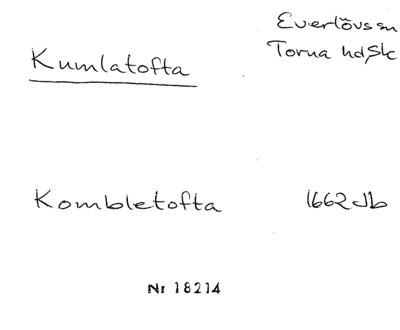 Everlövs sn
Kumlatofta
Torna hd, Sk
Kombletofta 1662 Jb
Nr 18214